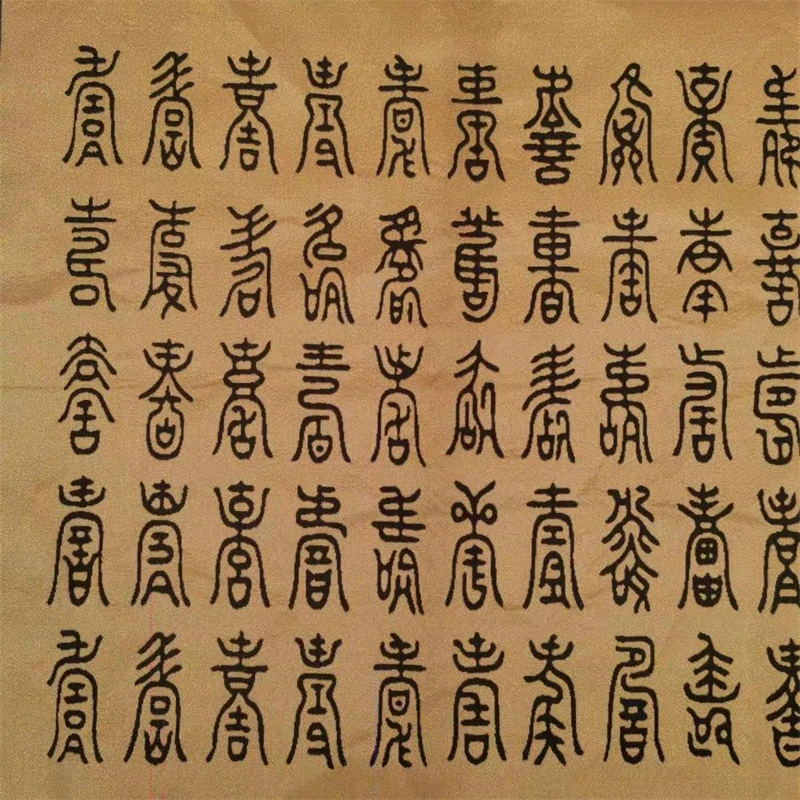 壽壽壽壽壽壽壽壽壽壽
壽壽壽壽壽壽壽壽壽壽
壽壽壽壽壽壽壽壽壽壽
壽壽壽壽壽壽壽壽壽壽
壽壽壽壽壽壽壽壽壽壽